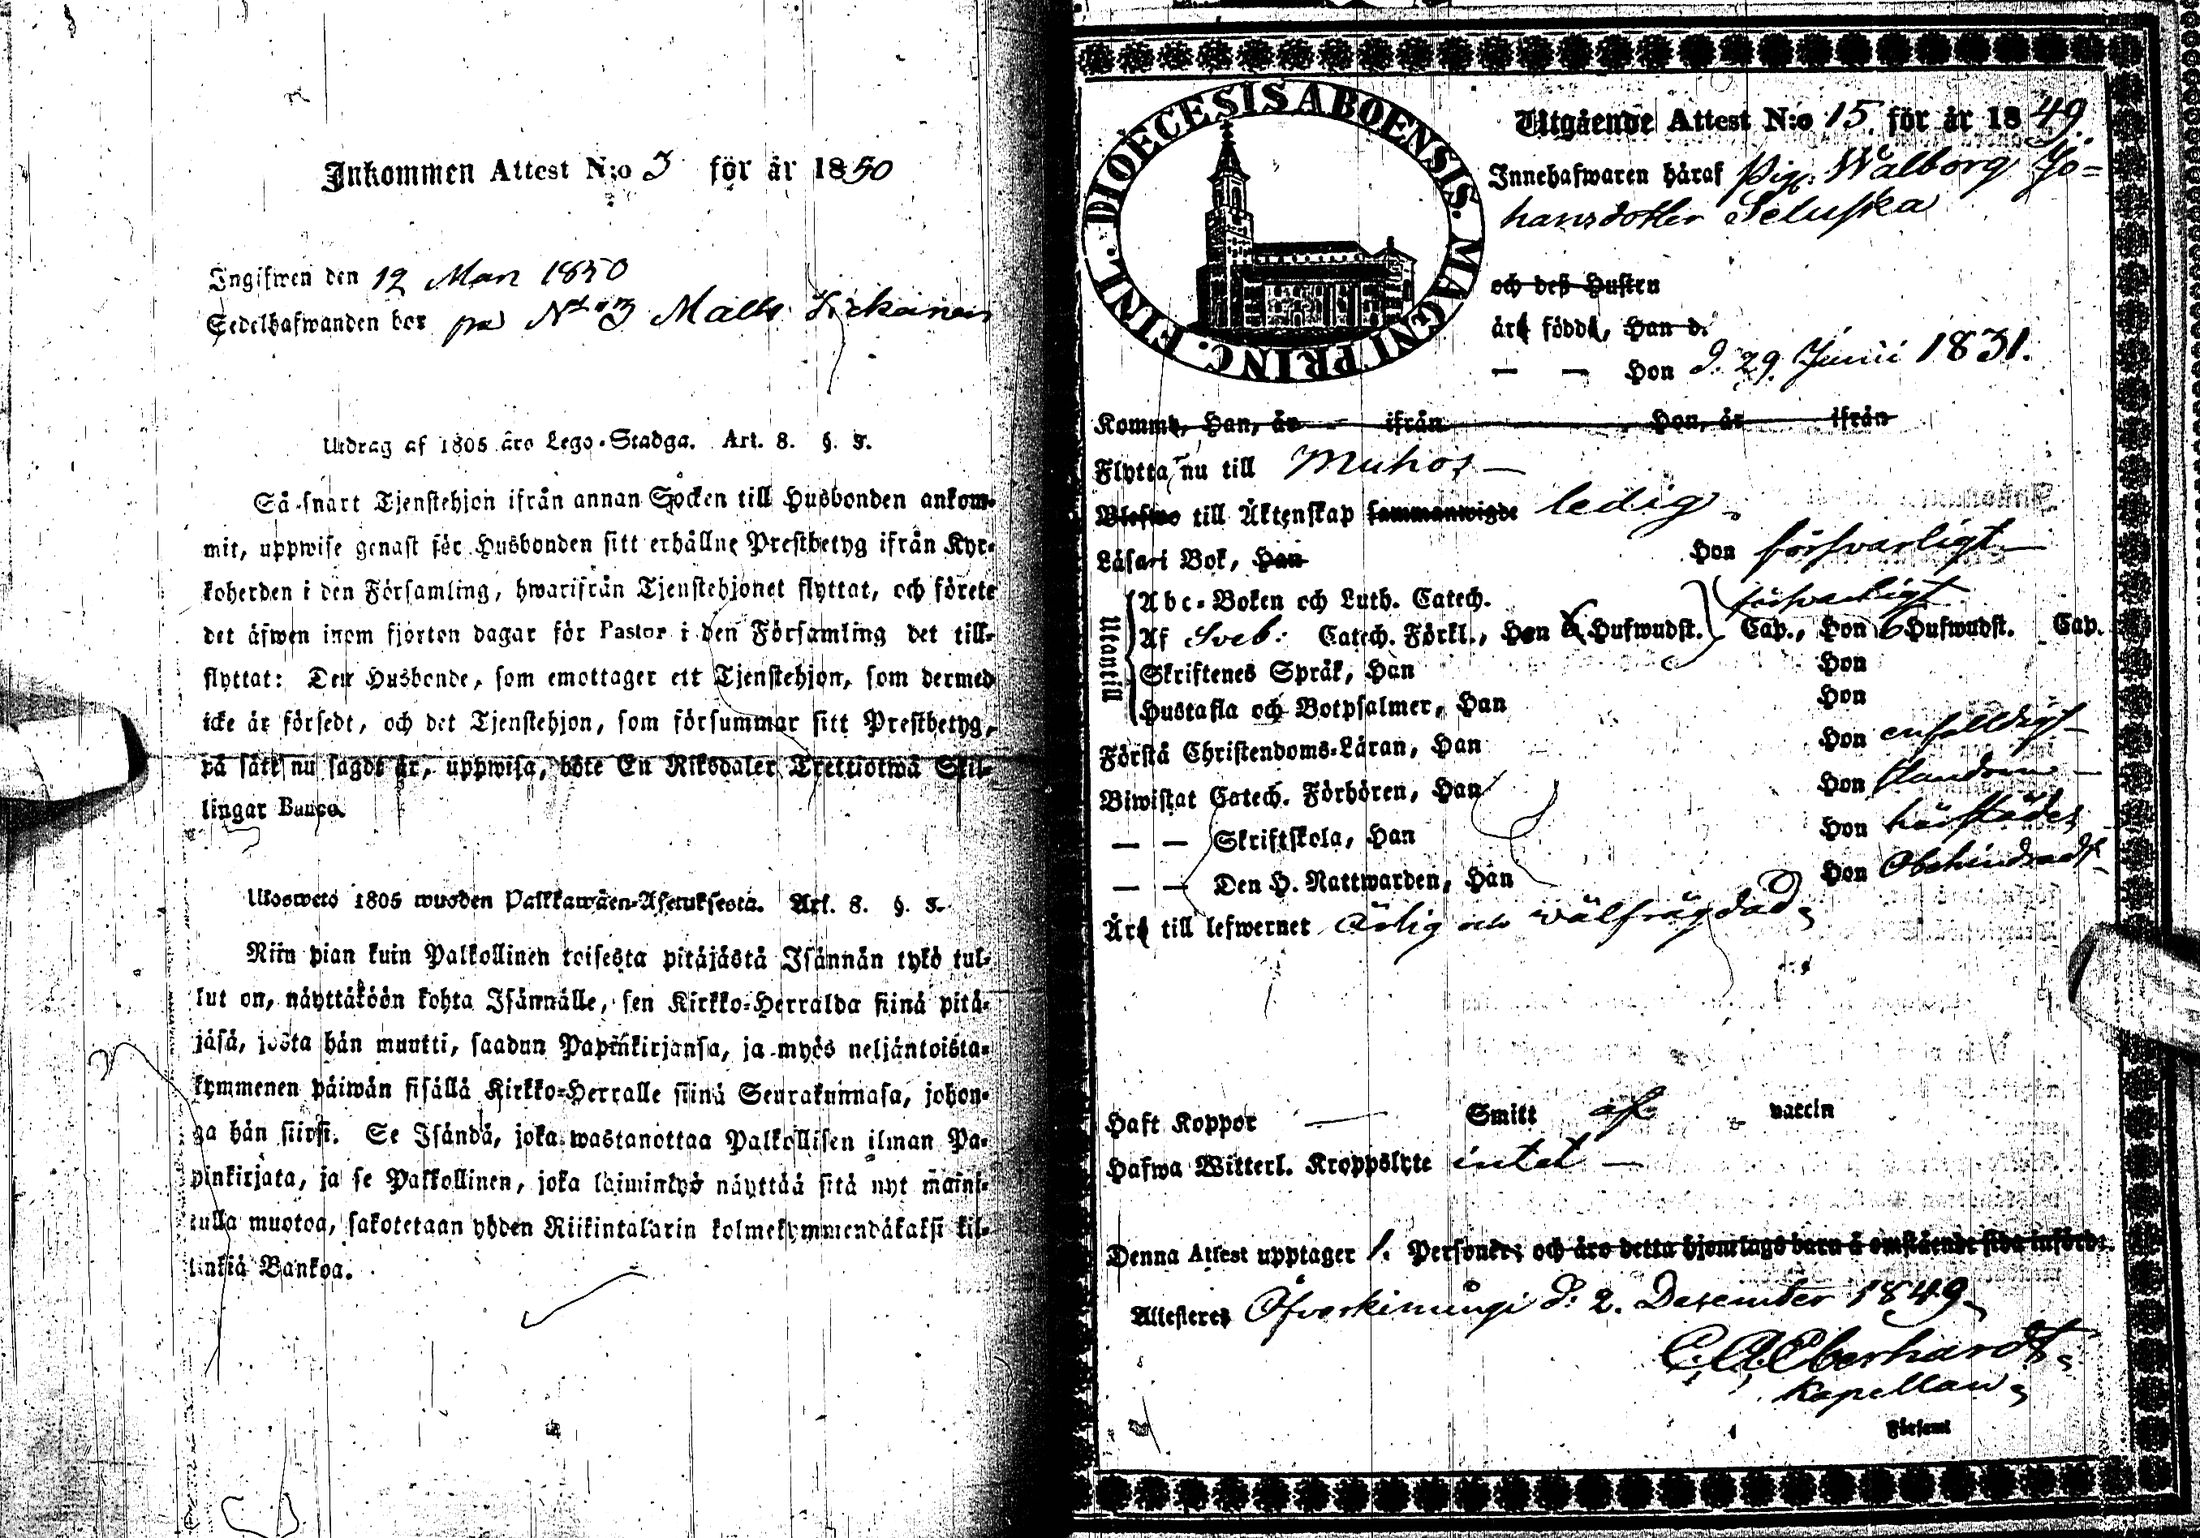 Inkommen Attest N:o 3 för år 1850
Ingifwen den 12 Mars 1850
Sedelhafwanden bor på N:o 3 Matts
Utdrag af 1805 års Lego-Stadga. Art. 8. §. 3.
Så snart Tjenstehjon ifrån annan Socken till Husbonden ankom-
mit, uppwise genast för Husbonden sitt erhållne Prestbetyg ifrån Kyr-
koherden i den Församling, hwarifrån Tjenstehjonet flyttat, och förete
det äfwen inom fjorton dagar för Pastor i den Församling det till-
flyttat: Den Husbonde, som emottager ett Tjenstehjon, som dermed
icke är försedt, och det Tjenstehjon, som försummar sitt Prestbetyg,
på sätt nu sagdt är, uppwisa, böte En Riksdaler Trettiotwå Skil-
lingar Banco.
Ulosweto 1805 wuoden Palkkawäen-Asetuksesta. Art. 8. §. 3.
Niin pian kuin Palkollinen toisesta pitäjästä Isännän tykö tul-
lut on, näyttäköön kohta Isännälle, sen Kirkko-Herralda siinä pitä-
jäsä, josta hän muutti, saadun Papinkirjansa, ja myös neljäntoista-
kymmenen päiwän sisällä Kirkko-Herralle siinä Seurakunnasa, johon-
ga hän siirsi. Se Isändä, joka wastanottaa Palkollisen ilman Pa-
pinkirjata, ja se Palkollinen, joka laiminlyö näyttää sitä nyt maini-
tulla muotoa, sakotetaan yhden Riikintalarin kolmekymmendäkaksi kil-
linkiä Bankoa.
FINL. DIOECESIS ABOENSIS. MAGNI PRINC.
Utgående Attest N:o 15 för år 1849.
Innehafwaren häraf Pig. Walborg Jo=
hansdotter Seluska
och deß Hustru
äro födde, Han d.
— — Hon d. 29 Junii 1831.
Komme, Han, år — ifrån Hon, år ifrån
Flytta nu till Muhos —
Blefwo till Äktenskap sammanwigde ledig
Läsa i Bok, Han Hon försvarligt
Utantill
Abc-Boken och Luth. Catech. försvarligt
Af Sveb: Catech. Förkl., Hon 6 Hufwudst. Cap., Hon 6 Hufwudst. Cap.
Skriftenes Språk, Han Hon
Hustafla och Botpsalmer, Han Hon
Förstå Christendoms-Läran, Han Hon enfaldigt
Biwistat Catech. Förhören, Han Hon
— — Skriftskola, Han Hon härstädes
— — Den H. Nattwarden, Han Hon Obehindradt
Äro till lefwernet ärlig och wälfrägdad
Haft Koppor — Smitt af vaccin
Hafwa Witterl. Kroppslyte intet —
Denna Attest upptager 1. Personer; och äro detta hjonelags barn å omstående sida införde.
Attesteres Öfverkimingi d: 2. December 1849
C. A. Eberhardt
Kapellan
Församl